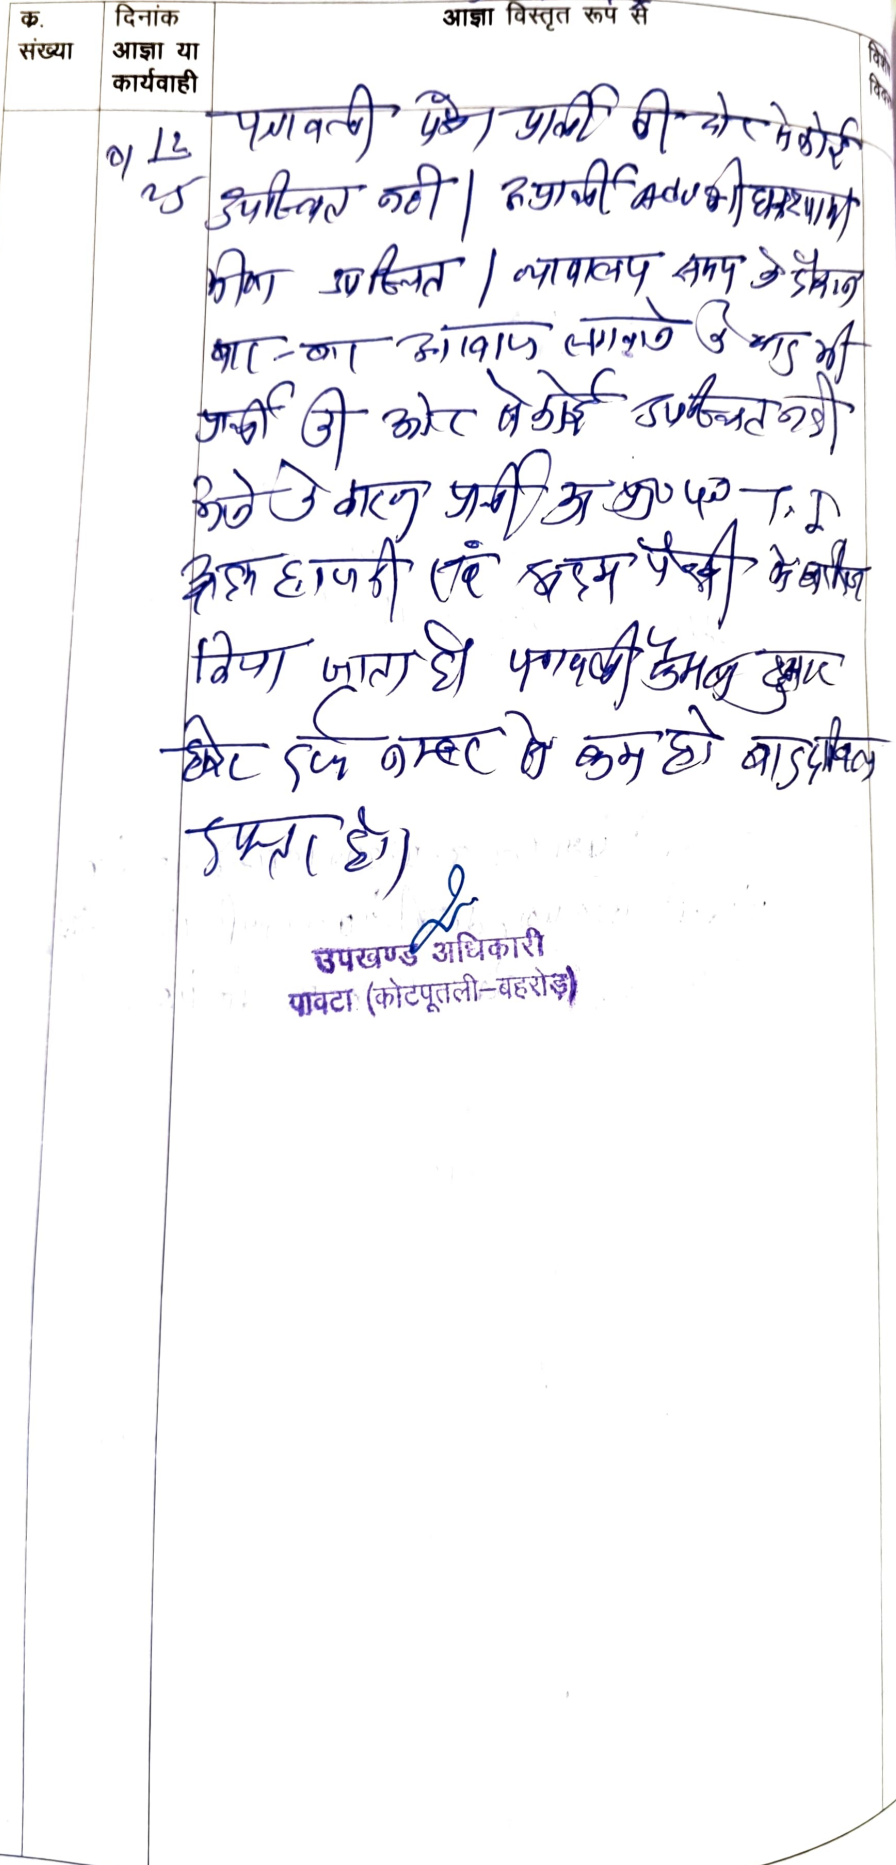 क्र. संख्या
दिनांक आज्ञा या कार्यवाही
आज्ञा विस्तृत रूप से
12
25
पत्रावली पेश। प्रार्थी की ओर से कोई
उपस्थित नही। अप्रार्थी श्री घनश्याम
मीणा उपस्थित। न्यायालय समय के दौरान
बार-बार आवाज लगवाने के बाद भी
प्रार्थी की ओर से कोई उपस्थित नही
होने के कारण प्रार्थी का प्रा० पत्र T.I
अदम हाजरी एवं अदम पैरवी मे खारिज
किया जाता है। पत्रावली फैसल शुमार
होकर दर्ज नम्बर से कम हो बाद दाखिल
दफ्तर हो।
उपखण्ड अधिकारी
पावटा (कोटपूतली-बहरोड़)